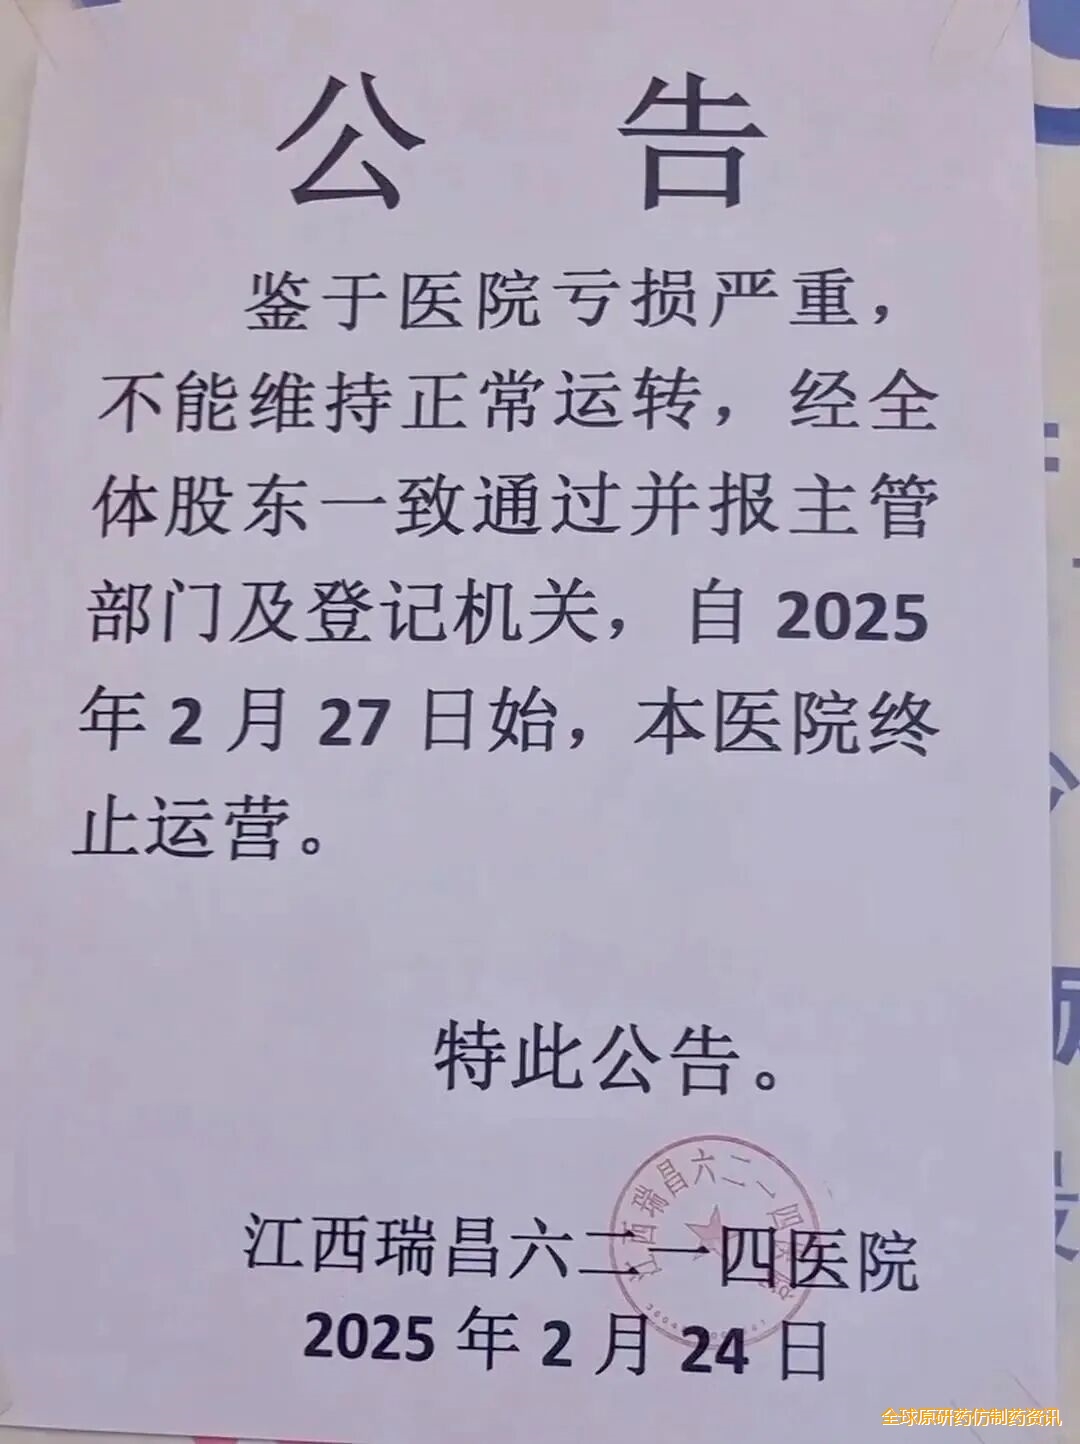 公 告
鉴于医院亏损严重，
不能维持正常运转，经全
体股东一致通过并报主管
部门及登记机关，自 2025
年 2 月 27 日始，本医院终
止运营。
特此公告。
江西瑞昌六二一四医院
2025 年 2 月 24 日
江西瑞昌六二一四医院
全球原研药仿制药资讯